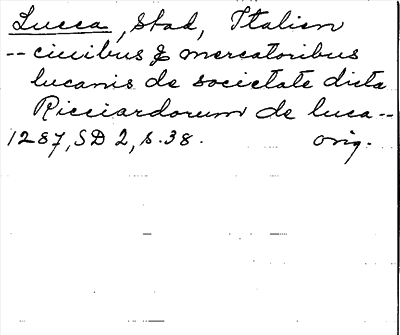 Lucca, stad, Italien
-- ciuibus & mercatoribus
lucanis de societate dicta
Ricciardorum de luca --
1287, SD 2, s. 38. orig.